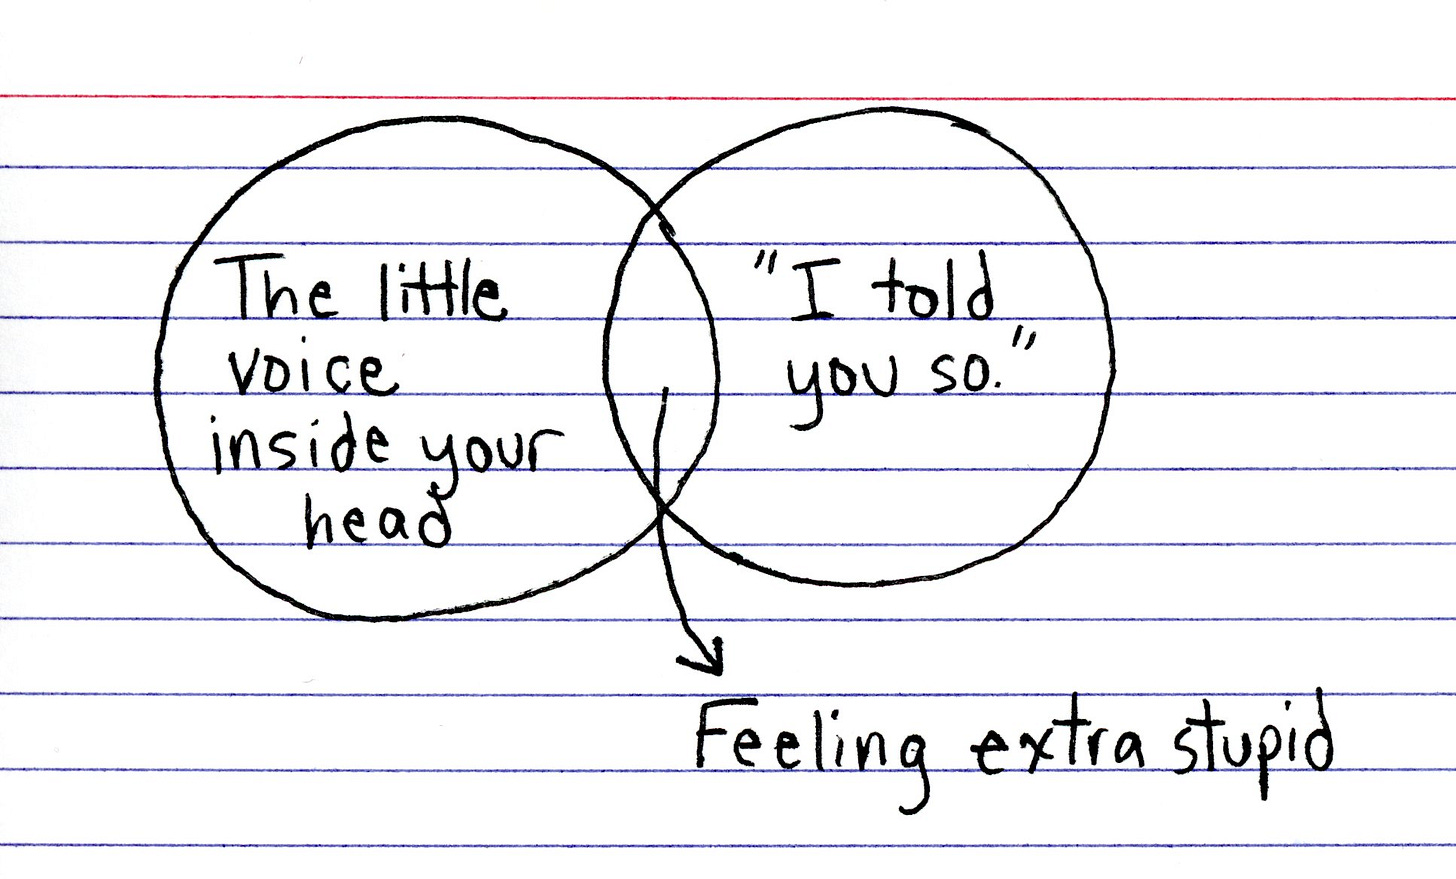 The little
voice
inside your
head
"I told
you so."
Feeling extra stupid